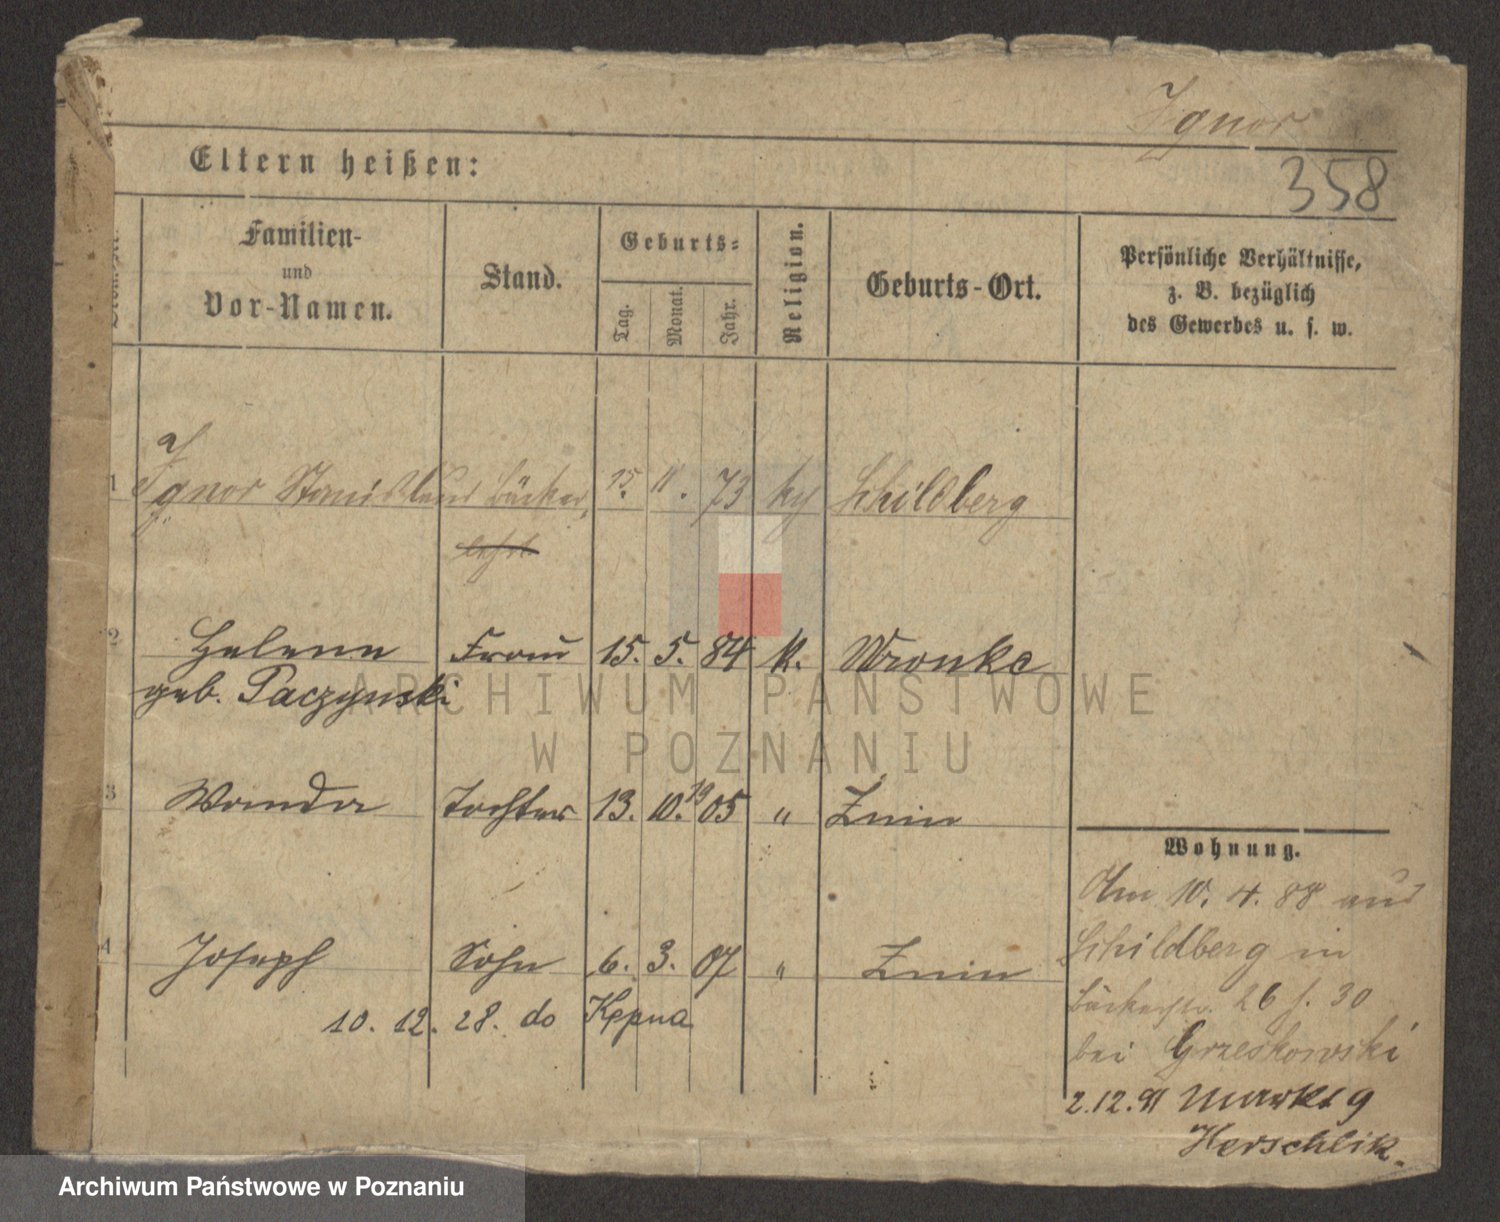 Ignor
358
Eltern heißen:
Familien-
und
Vor-Namen.
Stand.
Geburts-
Tag.
Monat.
Jahr.
Religion.
Geburts-Ort.
Persönliche Verhältnisse,
z. B. bezüglich
des Gewerbes u. s. w.
1 Ignor Stanislaus Bäcker 15. 11. 73 kg Schildberg
2 Helene Frau 15. 5. 84 k. Wronke
geb. Paczynski
3 Wanda Tochter 13. 10. 1905 " Znin
4 Joseph Sohn 6. 3. 07 " Znin
10. 12. 28. do Kępna
Wohnung.
Am 10. 4. 88 aus
Schildberg in
Bäckerstr. 26 b. 30
bei Grzeskowski
2.12.91 Markt 9
Herschlik.
ARCHIWUM PAŃSTWOWE
W POZNANIU
Archiwum Państwowe w Poznaniu